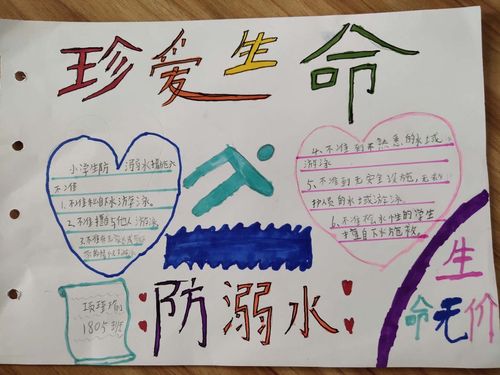 珍爱生命
小学生防溺水措施六
不准
1.不准私自下水游泳
2.不准擅自与他人游泳
3.不准在无家长或
4.不准到不熟悉的水域
游泳
5、不准到无安全设施,无救
护人员的水域游泳
6.不准不会水性的学生
擅自下水施救
1805班
防溺水
生
命无价